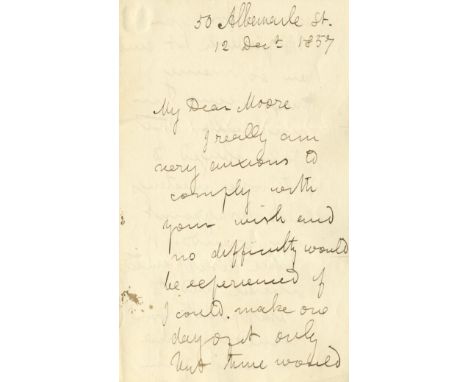 50 Albemarle St.
12 Dec^r 1857
My Dear Moore
I really am
very anxious to
comply with
your wish and
no difficulty would
be experienced if
I could make one
day of it only
but time would